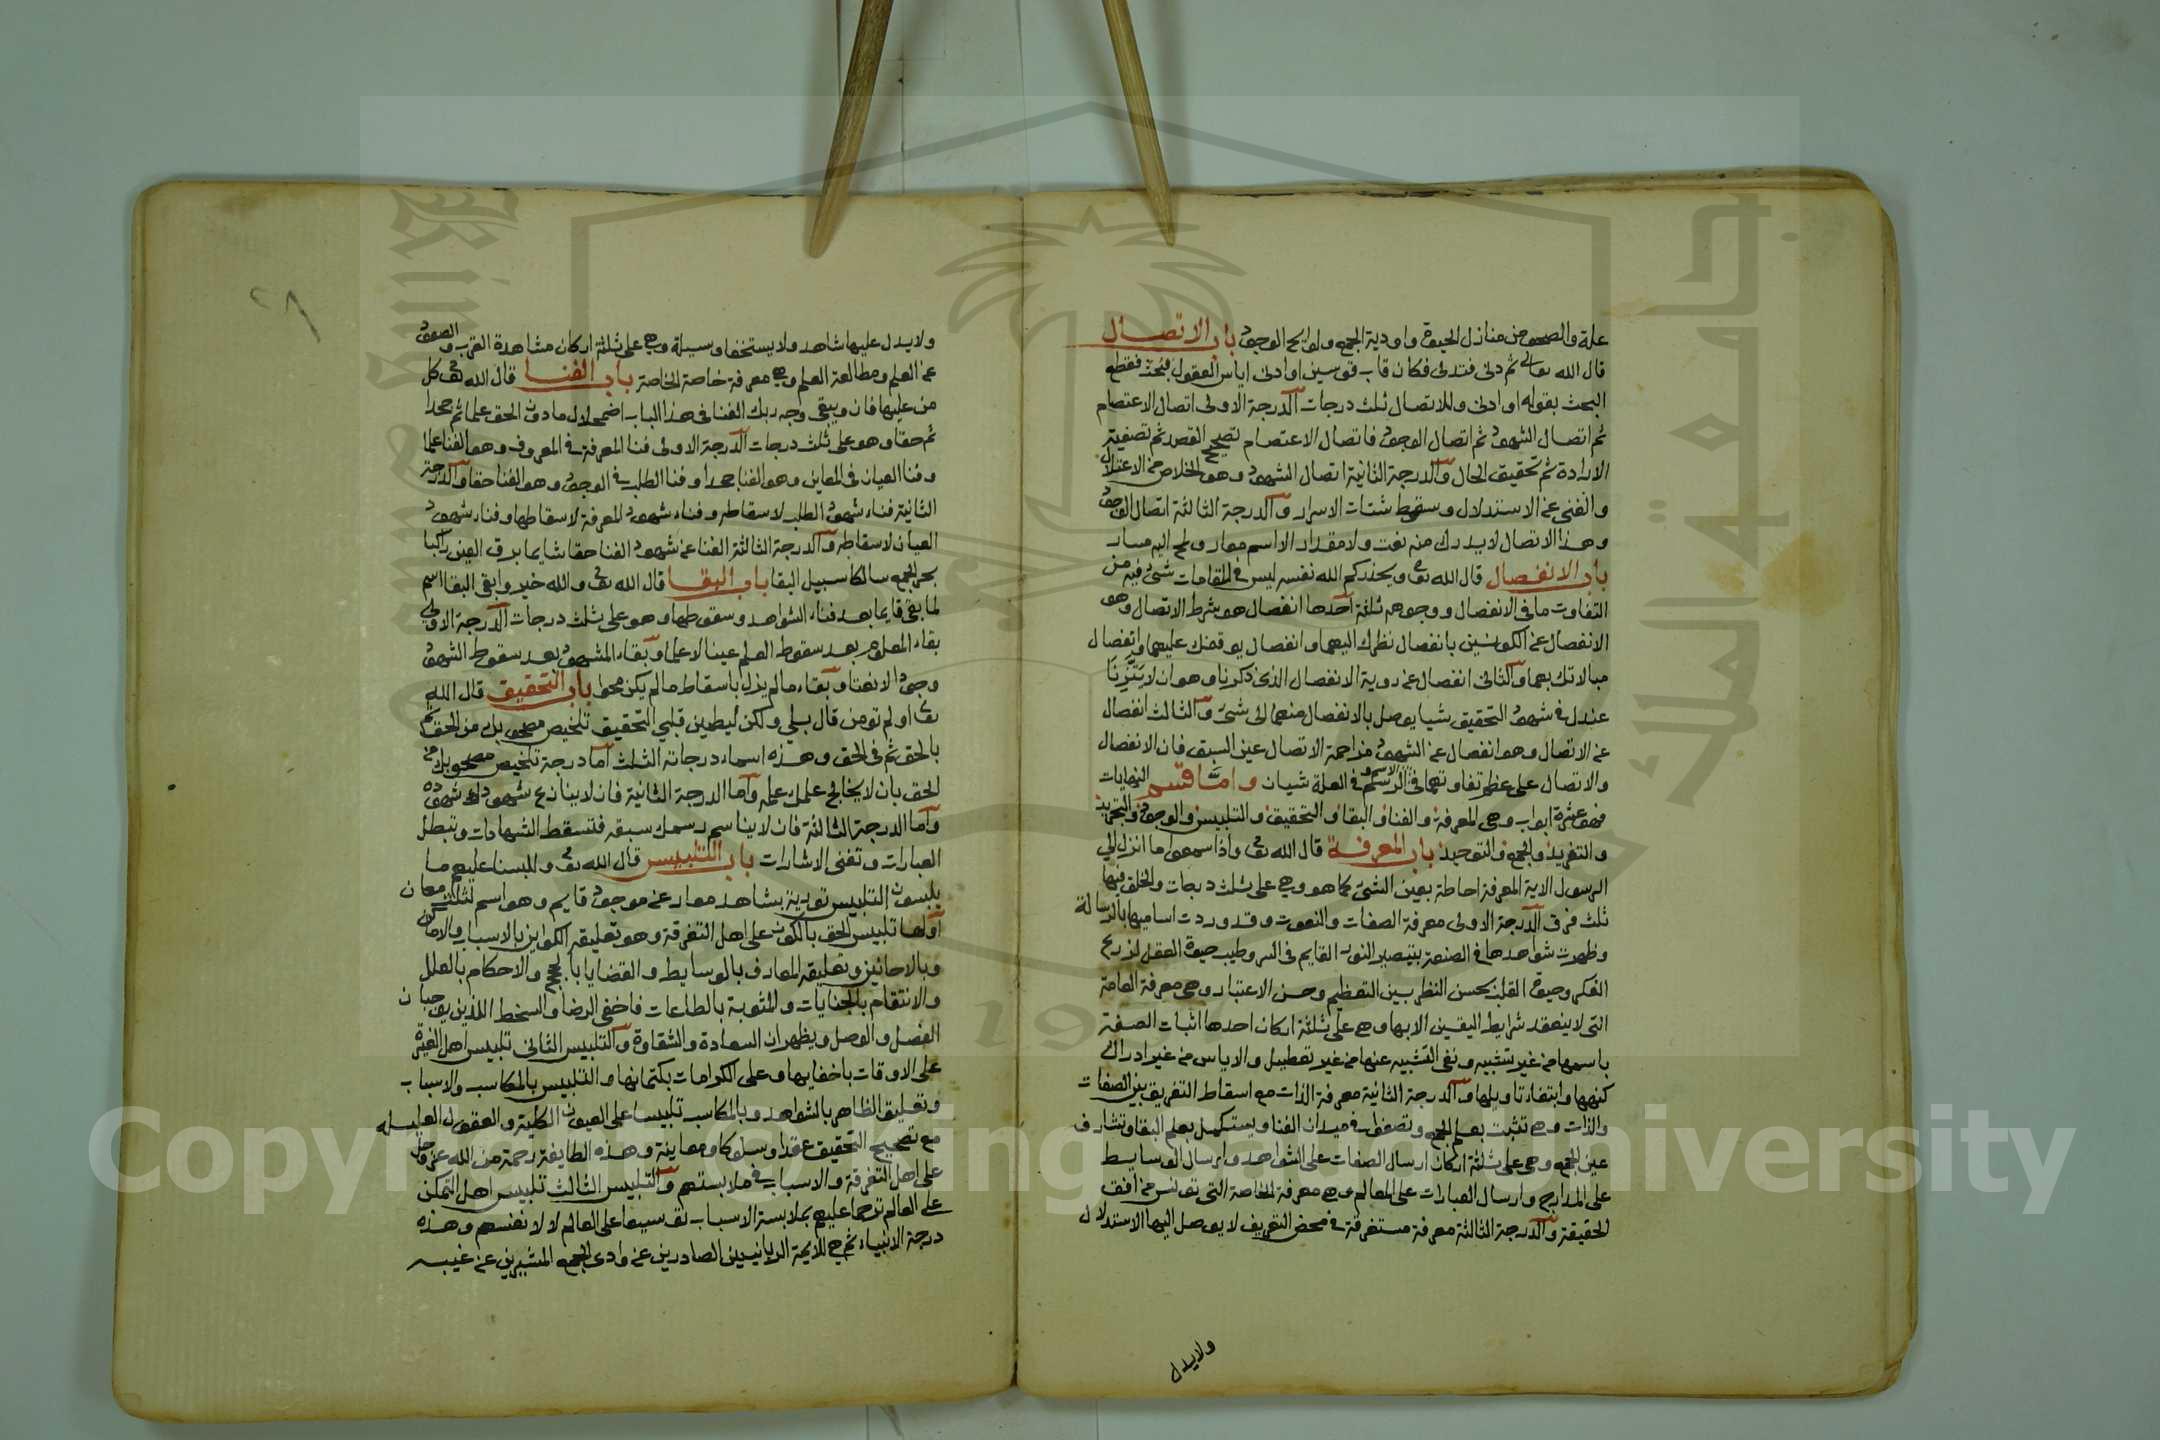 علة والصحو من منازل الحيوة واودية الجمع ولوايح الوجود باب الاتصال
قال الله تعالى ثم دنى فتدلى فكان قاب قوسين او ادنى اياس العقول فبحث فقطع
البحث بقوله او ادنى وللاتصال ثلث درجات الدرجة الاولى اتصال الاعتصام
ثم اتصال الشهود ثم اتصال الوجود فاتصال الاعتصام تصحيح القصد ثم تصفية
الارادة ثم تحقيق الحال والدرجة الثانية اتصال الشهود وهو الخلاص من الاعتلال
والغنى عن الاستدلال وسقوط شتات الاسرار والدرجة الثالثة اتصال الوجود
وهذا الاتصال لا يدرك منه نعت ولا مقدار الا اسم معار ولمح اليه مسار
باب الانفصال قال الله تعا ويحذركم الله نفسه ليس في المقامات شئ فيه من
التفاوت ما في الانفصال ووجوهه ثلثة احدها انفصال هو شرط الاتصال وهو
الانفصال عن الكونين بانفصال نظرك اليهما وانفصال يوقفك عليهما وانفصال
مبالاتك بهما والثاني انفصال عن روية الانفصال الذى ذكرنا وهو ان لا يتزنا
عندك في شهود التحقيق شيا يوصل بالانفصال منهما الى شئ والثالث انفصال
عن الاتصال وهو انفصال عن الشهود مزاحمة الاتصال عين السبق فان الانفصال
والاتصال على عظم تفاوتهما في الاسم والرسم في العلة شيان واما قسم النهايات
فهو عشرة ابواب وهي المعرفة والفنا والبقا والتحقيق والتلبيس والوجود والتجريد
والتفريد والجمع والتوحيد باب المعرفة قال الله تعا واذا سمعوا ما انزل الي
الرسول الاية المعرفة احاطة بعين الشئ كما هو وهي على ثلث درجات والخلق فيها
ثلث فرق الدرجة الاولى معرفة الصفات والنعوت وقد وردت اساميها بالرسالة
وظهرت شواهدها في الصنعة بتبصير النور القايم في السر وطيب حيوة العقل لزرع
الفكر وحيوة القلب بحسن النظر بين التعظيم وحسن الاعتبار وهي معرفة العامة
التى لا ينعقد شرايط اليقين الا بها وهي على ثلثة اركان احدها اثبات الصفة
باسمها من غير تشبيه ونفى التشبيه عنها من غير تعطيل والاياس من غير ادراك
كنهها وابتغاء تاويلها والدرجة الثانية معرفة الذات مع اسقاط التفريق بين الصفات
والذات وهي تثبت بعلم الجمع وتصفو في ميدان الفنا ويستكمل بعلم البقا وتشارف
عين الجمع وهي على ثلثة اركان ارسال الصفات على الشواهد وارسال الوسايط
على المدارج وارسال العبارات على المعالم وهي معرفة الخاصة التى تونس من افق
الحقيقة والدرجة الثالثة معرفة مستغرقة في محض التعريف لا يوصل اليها الاستدلال
ولا يدل
٢٨
ولا يدل عليها شاهد ولا يستحقها وسيلة وهي على ثلثة اركان مشاهدة القرب والصعود
عن العلم ومطالعة العلم وهي معرفة خاصة الخاصة باب الفنا قال الله تعا كل
من عليها فان ويبقى وجه ربك الفنا في هذا الباب اضمحلال ما دون الحق علما ثم جحدا
ثم حقا وهو على ثلث درجات الدرجة الاولى فنا المعرفة في المعروف وهو الفنا علما
وفنا العيان في المعاين وهو الفنا جحدا وفنا الطلب في الوجود وهو الفنا حقا والدرجة
الثانية فناء شهود الطلب لاسقاطه وفناء شهود المعرفة لاسقاطها وفناء شهود
العيان لاسقاطه والدرجة الثالثة الفنا عن شهود الفنا حقا شايما برق العين راكبا
بحر الجمع سالكا سبيل البقا باب البقا قال الله تعا والله خير وابقى البقا اسم
لما بقى قايما بعد فناء الشواهد وسقوطها وهو على ثلث درجات الدرجة الاولى
بقاء المعلوم بعد سقوط العلم عينا لا علما وبقاء المشهود بعد سقوط الشهود
وجودا لا نعتا وبقاء ما لم يزل باسقاط ما لم يكن محوا باب التحقيق قال الله
تعا اولم تومن قال بلى ولكن ليطمين قلبي التحقيق تلخيص مصحوبك من الحق ثم
بالحق ثم في الحق وهذه اسماء درجاته الثلث اما درجة تلخيص مصحوبك من
الحق بان لا يخالج علمك علمه واما الدرجة الثانية فان لا ينازع شهودك شهوده
واما الدرجة الثالثة فان لا يناسم رسمك سبقه فتسقط الشهادات وتبطل
العبارات وتفنى الاشارات باب التلبيس قال الله تعا وللبسنا عليهم ما
يلبسون التلبيس تورية بشاهد معار عن موجود قايم وهو اسم لثلثة معان
اولها تلبيس الحق بالكون على اهل التفرقة وهو تعليقه الكواين بالاسباب والاماكن
وبالاحايين وتعليقه المعارف بالوسايط والقضايا بالحجج والاحكام بالعلل
والانتقام بالجنايات والمثوبة بالطاعات فاخفى الرضا والسخط اللذين يوجبان
الفصل والوصل ويظهران السعادة والشقاوة والتلبيس الثاني تلبيس اهل الغيرة
على الاوقات باخفايها وعلى الكرامات بكتمانها والتلبيس بالمكاسب والاسباب
وتعليق الظاهر بالشواهد وبالمكاسب تلبيسا على العيون الكليلة والعقول العليلة
مع تصحيح التحقيق عقدا وسلوكا ومعاينة وهذه الطايفة رحمة من الله عز وجل
على اهل التفرقة والاسباب في ملابستهم والتلبيس الثالث تلبيس اهل التمكن
على العالم ترحما عليهم بملابسة الاسباب توسيعا على العالم لا لانفسهم وهذه
درجة الانبياء ثم هي للايمة الربانيين الصادرين عن وادى الجمع المشيرين عن عينه
Copyright © King Saud University
جامعة الملك سعود